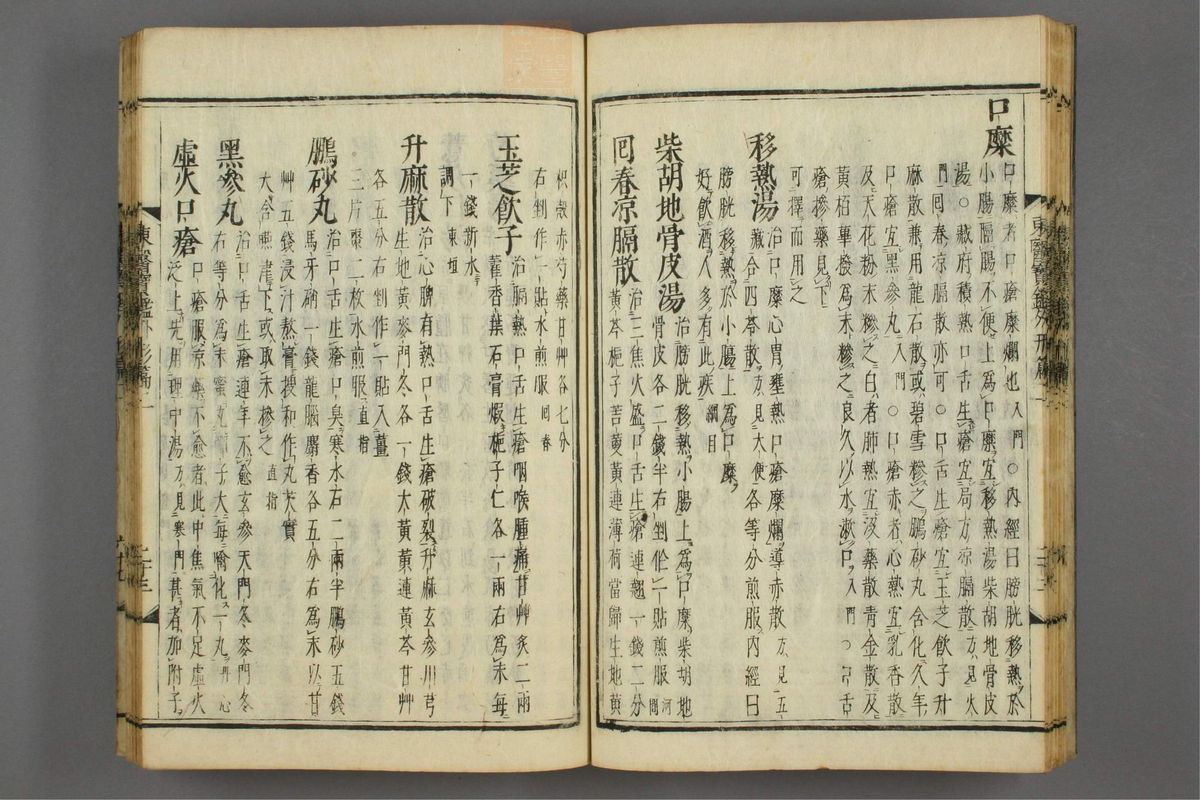 口糜口糜者口瘡糜爛也入門○內經曰膀胱移熱於
小腸膈腸不便上爲口糜宜移熱湯柴胡地骨皮
湯○藏府積熱口舌生瘡宜局方凉膈散方見火
門回春凉膈散亦可○口舌生瘡宜玉芝飮子升
麻散兼用龍石散或碧雪糝之鵬砂丸含化久年
口瘡宜黑參丸入門○口瘡赤者心熱宜乳香散
及天花粉末糝之白者肺熱宜汲藥散靑金散及
黃栢蓽撥爲末糝之良久以水漱口入門○口舌
瘡糝藥見下
可擇而用之
移熱湯治口糜心胃壅熱口瘡糜爛導赤散方見五
藏合四苓散方見大便各等分煎服內經曰
膀胱移熱於小腸上爲口糜
好飮酒人多有此疾綱目
柴胡地骨皮湯治膀胱移熱小腸上爲口糜柴胡地
骨皮各二錢半右剉作一貼煎服河間
回春凉膈散治三焦火盛口舌生瘡連翹一錢二分
黃芩梔子苦莄黃連薄荷當歸生地黃
枳殼赤芍藥甘艸各七分
右剉作一貼水煎服回春
玉芝飮子治膈熱口舌生瘡咽喉腫痛甘艸炙二兩
藿香葉石膏煆梔子仁各一兩右爲末每
一錢新水
調下東垣
升麻散治心脾有熱口舌生瘡破裂升麻玄參川芎
生地黃麥門冬各一錢大黃黃連黃芩甘艸
各五分右剉作一貼入薑
三片棗二枚水煎服直指
鵬砂丸治口舌生瘡口臭寒水石二兩半鵬砂五錢
馬牙硝一錢龍腦麝香各五分右爲末以甘
艸五錢浸汁熬膏搜和作丸芡實
大含嚥津下或取末糝之直指
黑參丸治口舌生瘡連年不愈玄參天門冬麥門冬
右等分爲末蜜丸彈子大每噙化一丸丹心
虛火口瘡口瘡服凉藥不愈者此中焦氣不足虛火
泛上先用理中湯方見寒門甚者加附子
東醫寶鑑外形篇二
二十三